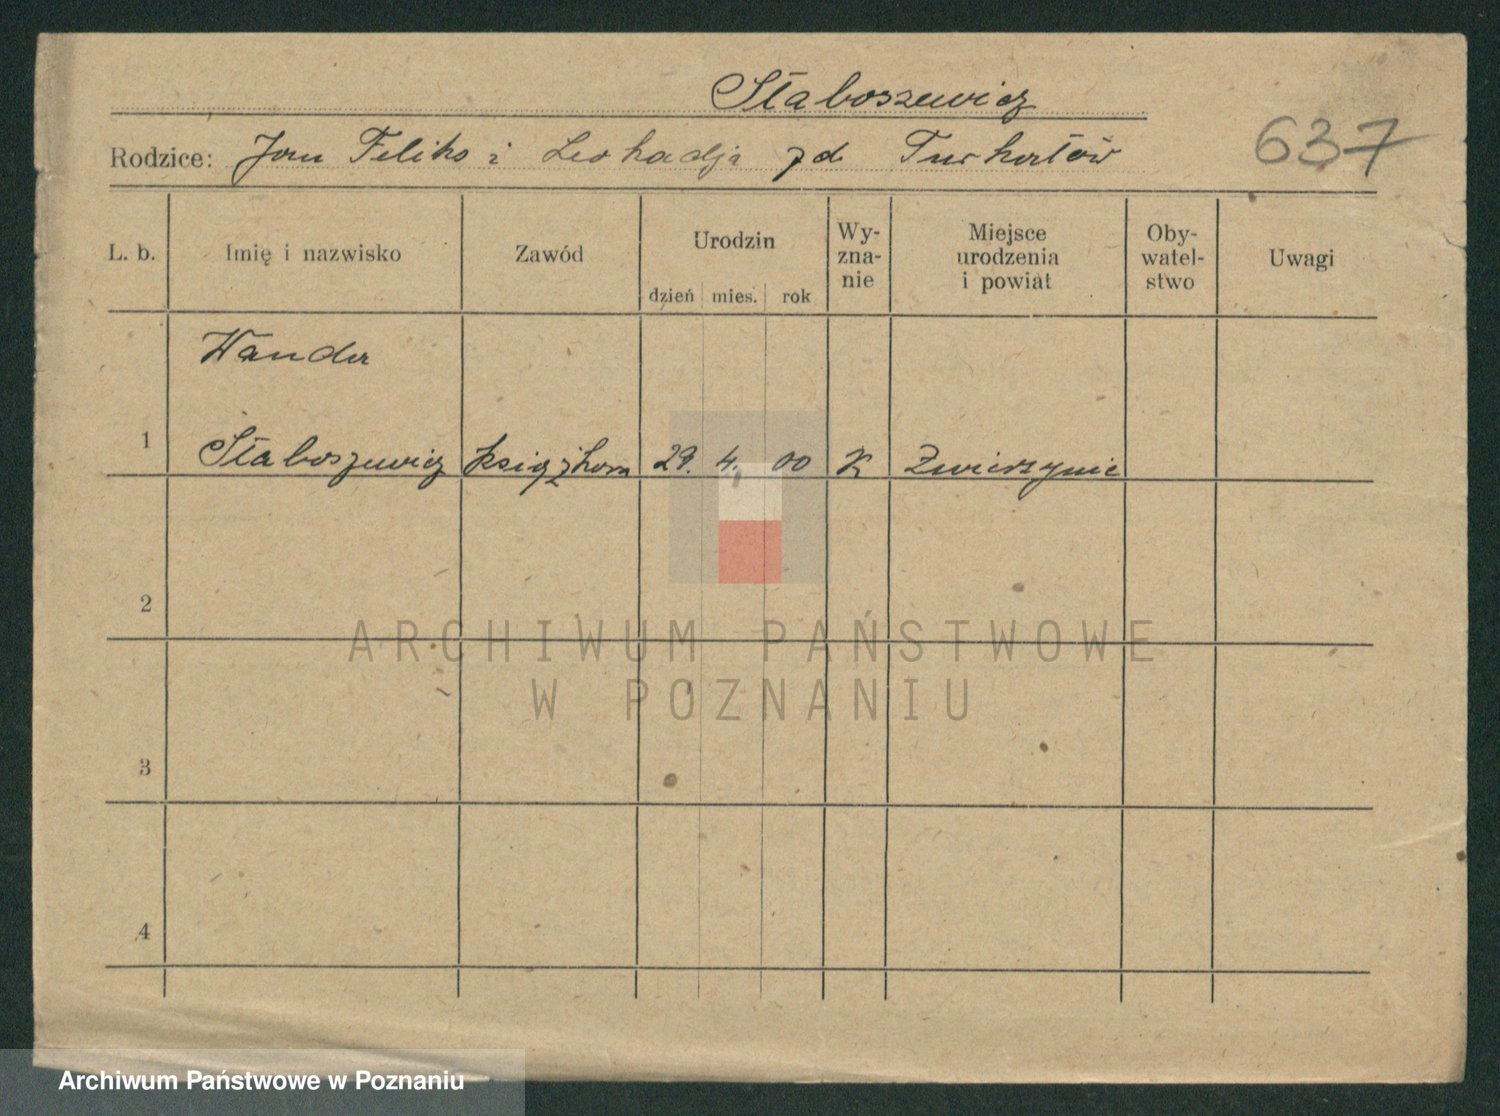 Słaboszewicz
637
Rodzice: Jan Feliks i Leokadja zd
L. b. Imię i nazwisko Zawód Urodzin dzień mies. rok Wy-zna-nie Miejsce urodzenia i powiat Oby-watel-stwo Uwagi
Wanda
1 Słaboszewicz księgkowa 29. 4. 00 K Zwierzyniec
2
3
4
ARCHIWUM PAŃSTWOWE
W POZNANIU
Archiwum Państwowe w Poznaniu